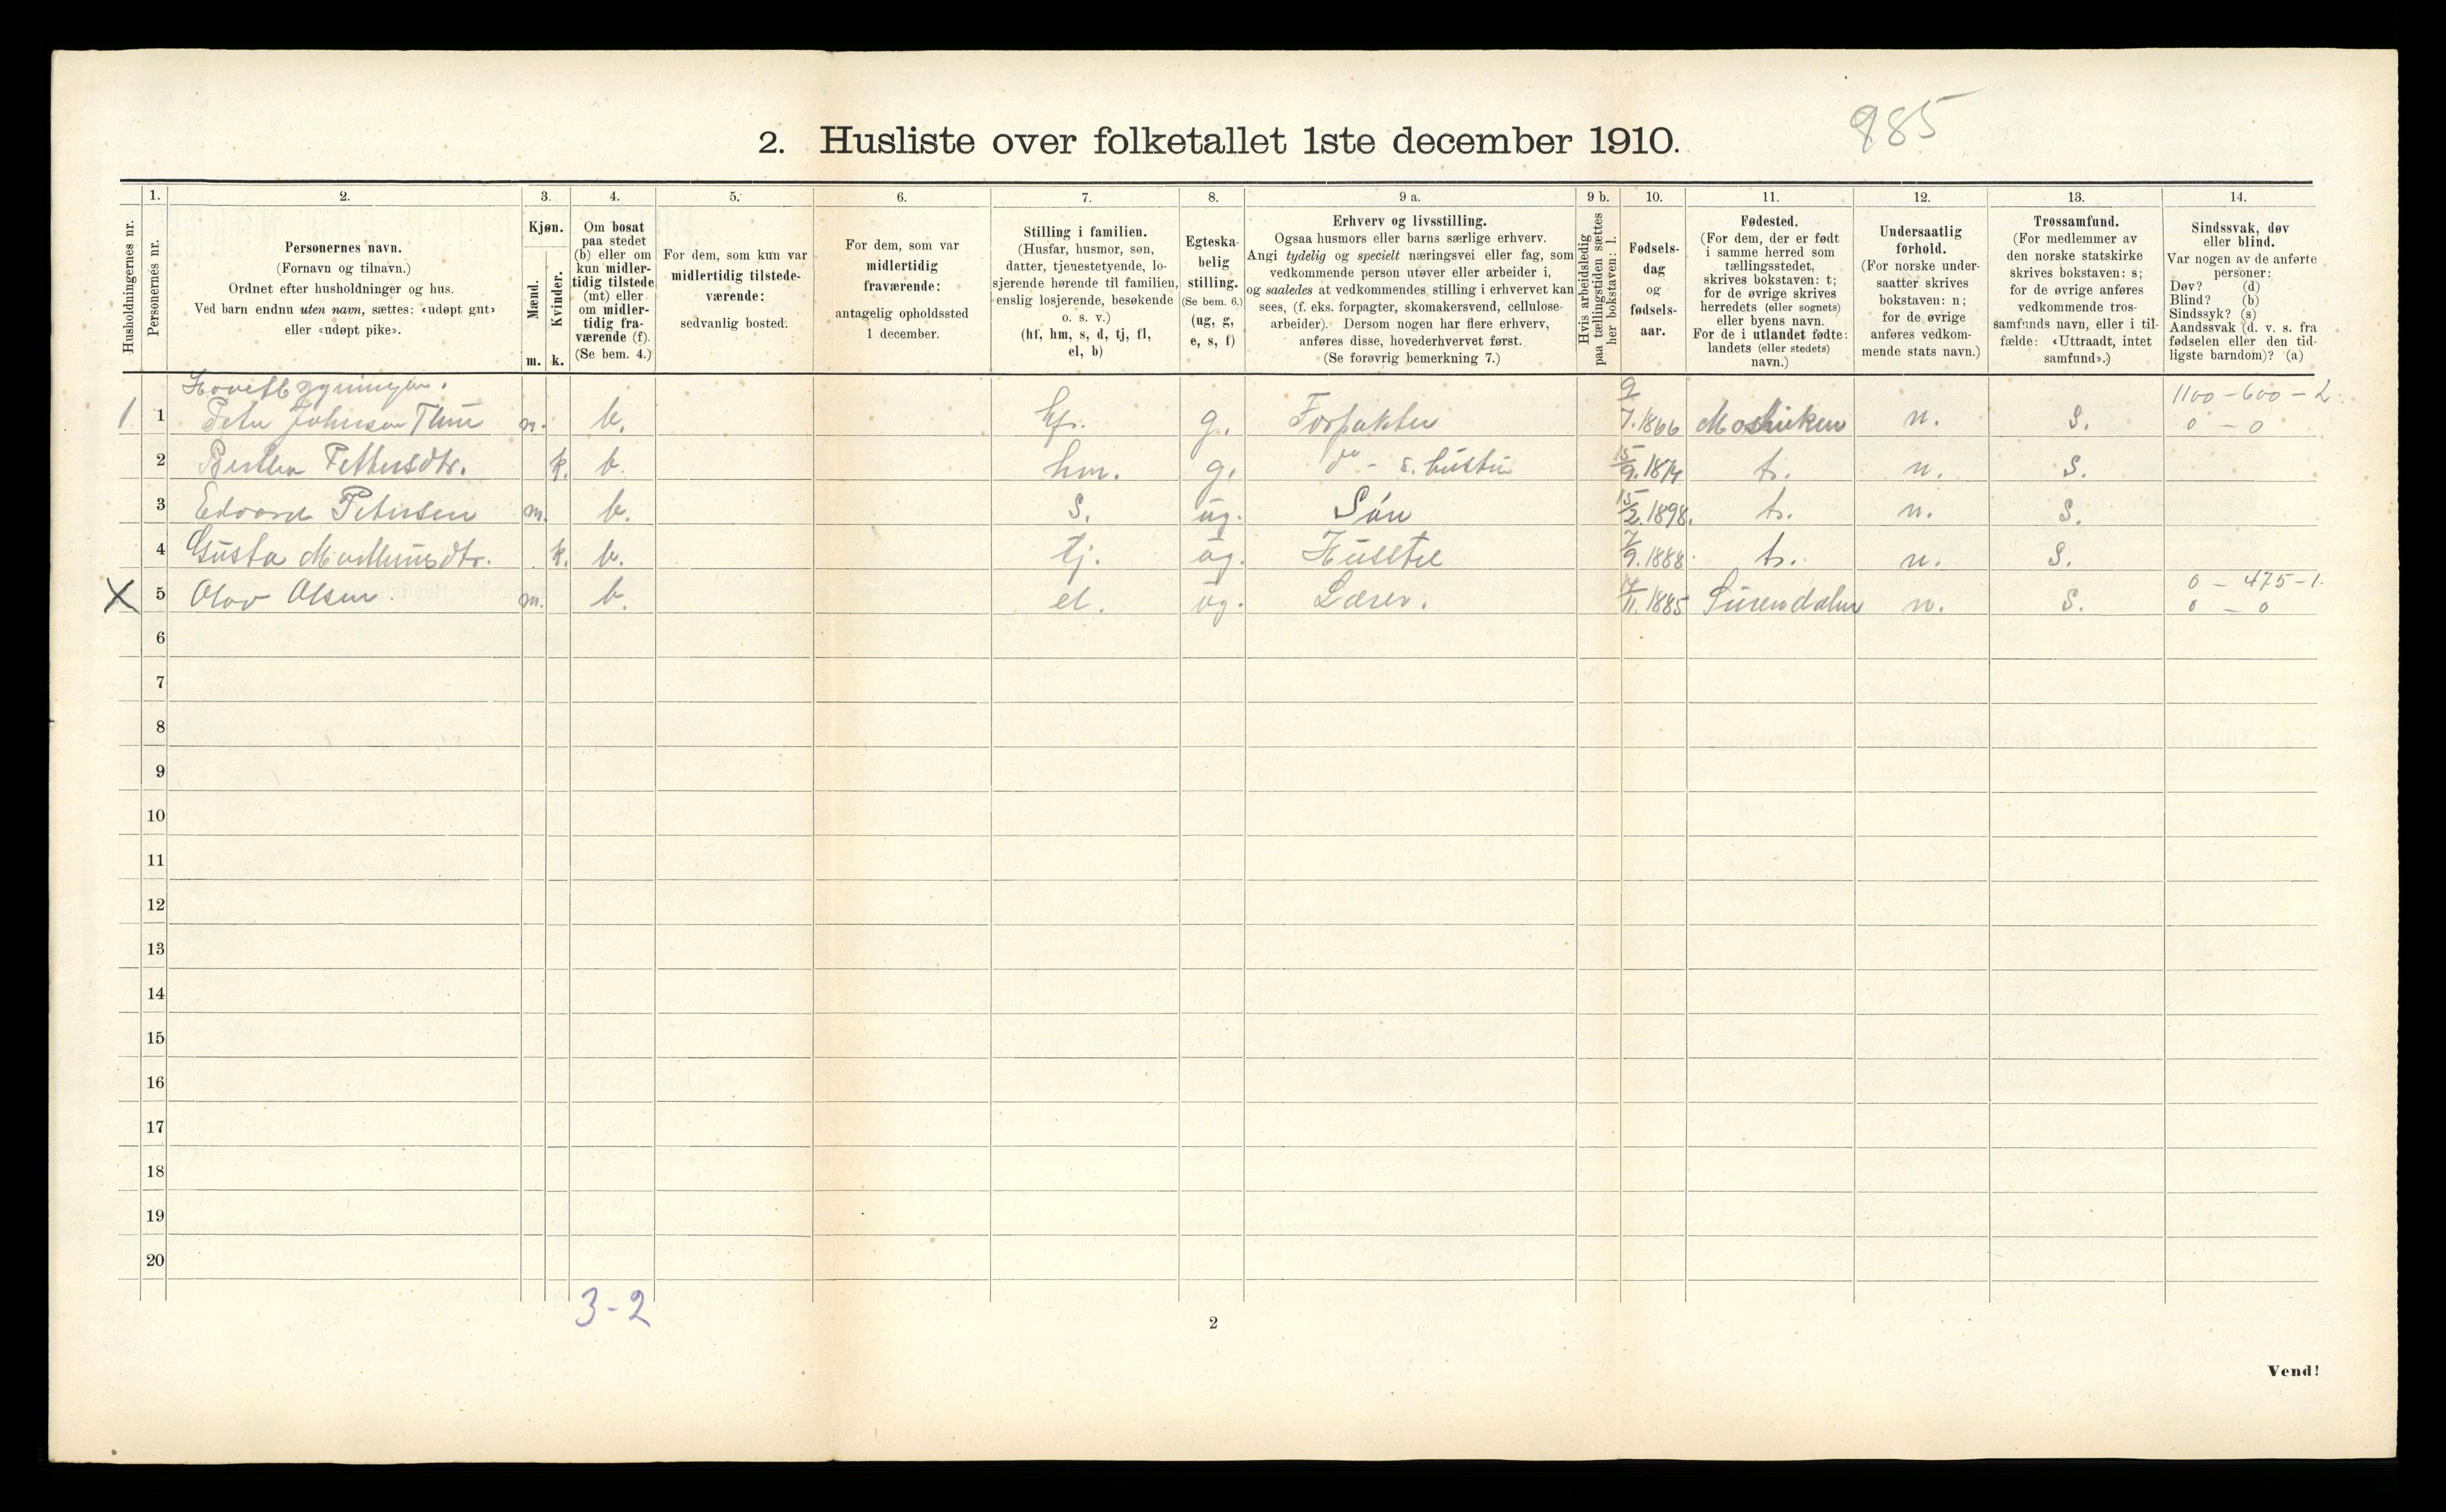 985
2. Husliste over folketallet 1ste december 1910.
1. 2. 3. 4. 5. 6. 7. 8. 9 a. 9 b. 10. 11. 12. 13. 14.
Husholdningernes nr.
Personernes nr.
Personernes navn.
(Fornavn og tilnavn.)
Ordnet efter husholdninger og hus.
Ved barn endnu uten navn, sættes: «udøpt gut»
eller «udøpt pike».
Kjøn.
Mænd.
Kvinder.
m. k.
Om bosat
paa stedet
(b) eller om
kun midler-
tidig tilstede
(mt) eller
om midler-
tidig fra-
værende (f).
(Se bem. 4.)
For dem, som kun var
midlertidig tilstede-
værende:
sedvanlig bosted.
For dem, som var
midlertidig
fraværende:
antagelig opholdssted
1 december.
Stilling i familien.
(Husfar, husmor, søn,
datter, tjenestetyende, lo-
sjerende hørende til familien,
enslig losjerende, besøkende
o. s. v.)
(hf, hm, s, d, tj, fl,
el, b)
Egteska-
belig
stilling.
(Se bem. 6.)
(ug, g,
e, s, f)
Erhverv og livsstilling.
Ogsaa husmors eller barns særlige erhverv.
Angi tydelig og specielt næringsvei eller fag, som
vedkommende person utøver eller arbeider i,
og saaledes at vedkommendes stilling i erhvervet kan
sees, (f. eks. forpagter, skomakersvend, cellulose-
arbeider). Dersom nogen har flere erhverv,
anføres disse, hovederhvervet først.
(Se forøvrig bemerkning 7.)
Hvis arbeidsledig
paa tællingstiden sættes
her bokstaven: l.
Fødsels-
dag
og
fødsels-
aar.
Fødested.
(For dem, der er født
i samme herred som
tællingsstedet,
skrives bokstaven: t;
for de øvrige skrives
herredets (eller sognets)
eller byens navn.
For de i utlandet fødte:
landets (eller stedets)
navn.)
Undersaatlig
forhold.
(For norske under-
saatter skrives
bokstaven: n;
for de øvrige
anføres vedkom-
mende stats navn.)
Trossamfund.
(For medlemmer av
den norske statskirke
skrives bokstaven: s;
for de øvrige anføres
vedkommende tros-
samfunds navn, eller i til-
fælde: «Uttraadt, intet
samfund».)
Sindssvak, døv
eller blind.
Var nogen av de anførte
personer:
Døv? (d)
Blind? (b)
Sindssyk? (s)
Aandssvak (d. v. s. fra
fødselen eller den tid-
ligste barndom)? (a)
1100 - 600 - 2.
1 1 Peter Johnsen m. b. hf. g. Forpakter 9/7.1866 n. S. 0 - 0
2 k. b. hm. g. do - s. hustru 15/9.1874 t. n. S.
3 Edvard Petersen m. b. S. ug. Søn 15/2.1898. t. n. S.
4 Gusta k. b. tj. ug. Husstel 7/9.1888. t. n. S.
0 - 475 - 1.
X 5 Olav Olsen. m. b. el. ug. Lærer. 1885 Surendalen n. S. 0 - 0
6
7
8
9
10
11
12
13
14
15
16
17
18
19
20
3-2
2
Vend!